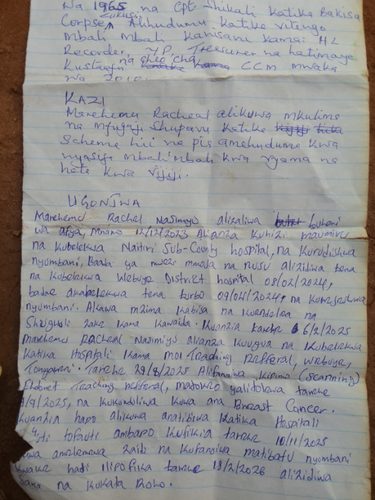 Na 1965 na Cpt Shikali Katika Bakisa
Corpse, Alihudumu Katika Vitengo
Mbali Mbali Kanisani Kama: HL
Recorder, YP, Treasurer na hatimaye
Kustaafu na cheo cha CCM mwaka
wa
KAZI
Marehemu Racheal alikuwa mkulima
na mfugaji Shupavu Katika
Scheme hii na pia amehudumu kwa
nyasifu mbali mbali kwa vyama na
hata kwa
UGONJWA
Marehemu Rachel Nasimiyu alizaliwa buheri
wa afya, Mnamo 12/12/2023 Alianza Kuhisi maumivu
na Kupelekwa Naitiri Sub-County hospital, na Kurudishwa
nyumbani. Baada ya mwezi mmoja na nusu alizidiwa tena
na Kupelekwa Webuye District hospital 08/02/2024,
badae akapelekwa tena 09/04/2024, na
nyumbani. Akawa mzima Kabisa na Kuendelea na
Shughuli zake Kama Kawaida. Kuanzia tarehe 6/2/2025
marehemu Racheal Nasimiyu alianza Kuugua na Kupelekwa
Katika Hospitali Kama Moi Teaching Refferal, Webuye,
Tongareni. Tarehe 29/8/2025 Alifanyiwa (Scanning)
Eldoret Teaching Refferal, matokeo yalitolewa tarehe
/9/2025, na Kukondiliwa Kawa ana Breast Cancer.
Kuanzia hapo alikuwa Katika Hospitali
tofauti ambapo Kufikia tarehe 10/11/2025
zaidi na Kufanyiwa matibabu nyumbani
Kwake hadi ilipofika tarehe 18/2/2026 alizidiwa
na Kukata Roho.